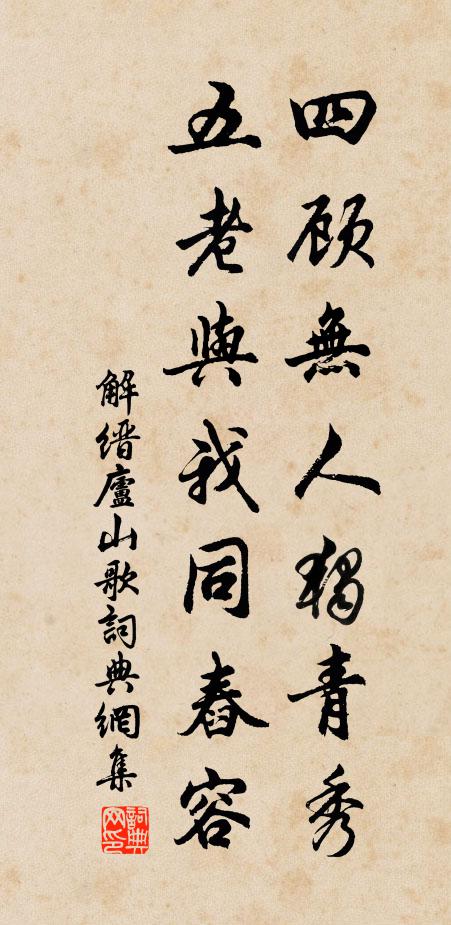 四顾無人獨青秀
五老與我同春容
解缙廬山歌詞典網集
詞典
网印